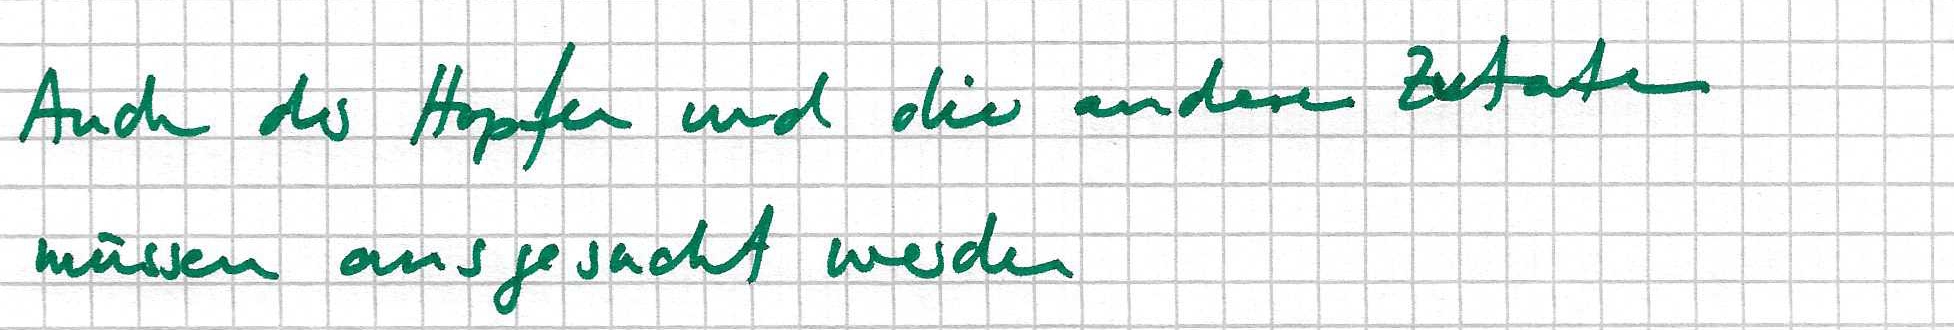 Auch der Hopfen und die anderen Zutaten
müssen ausgesucht werden